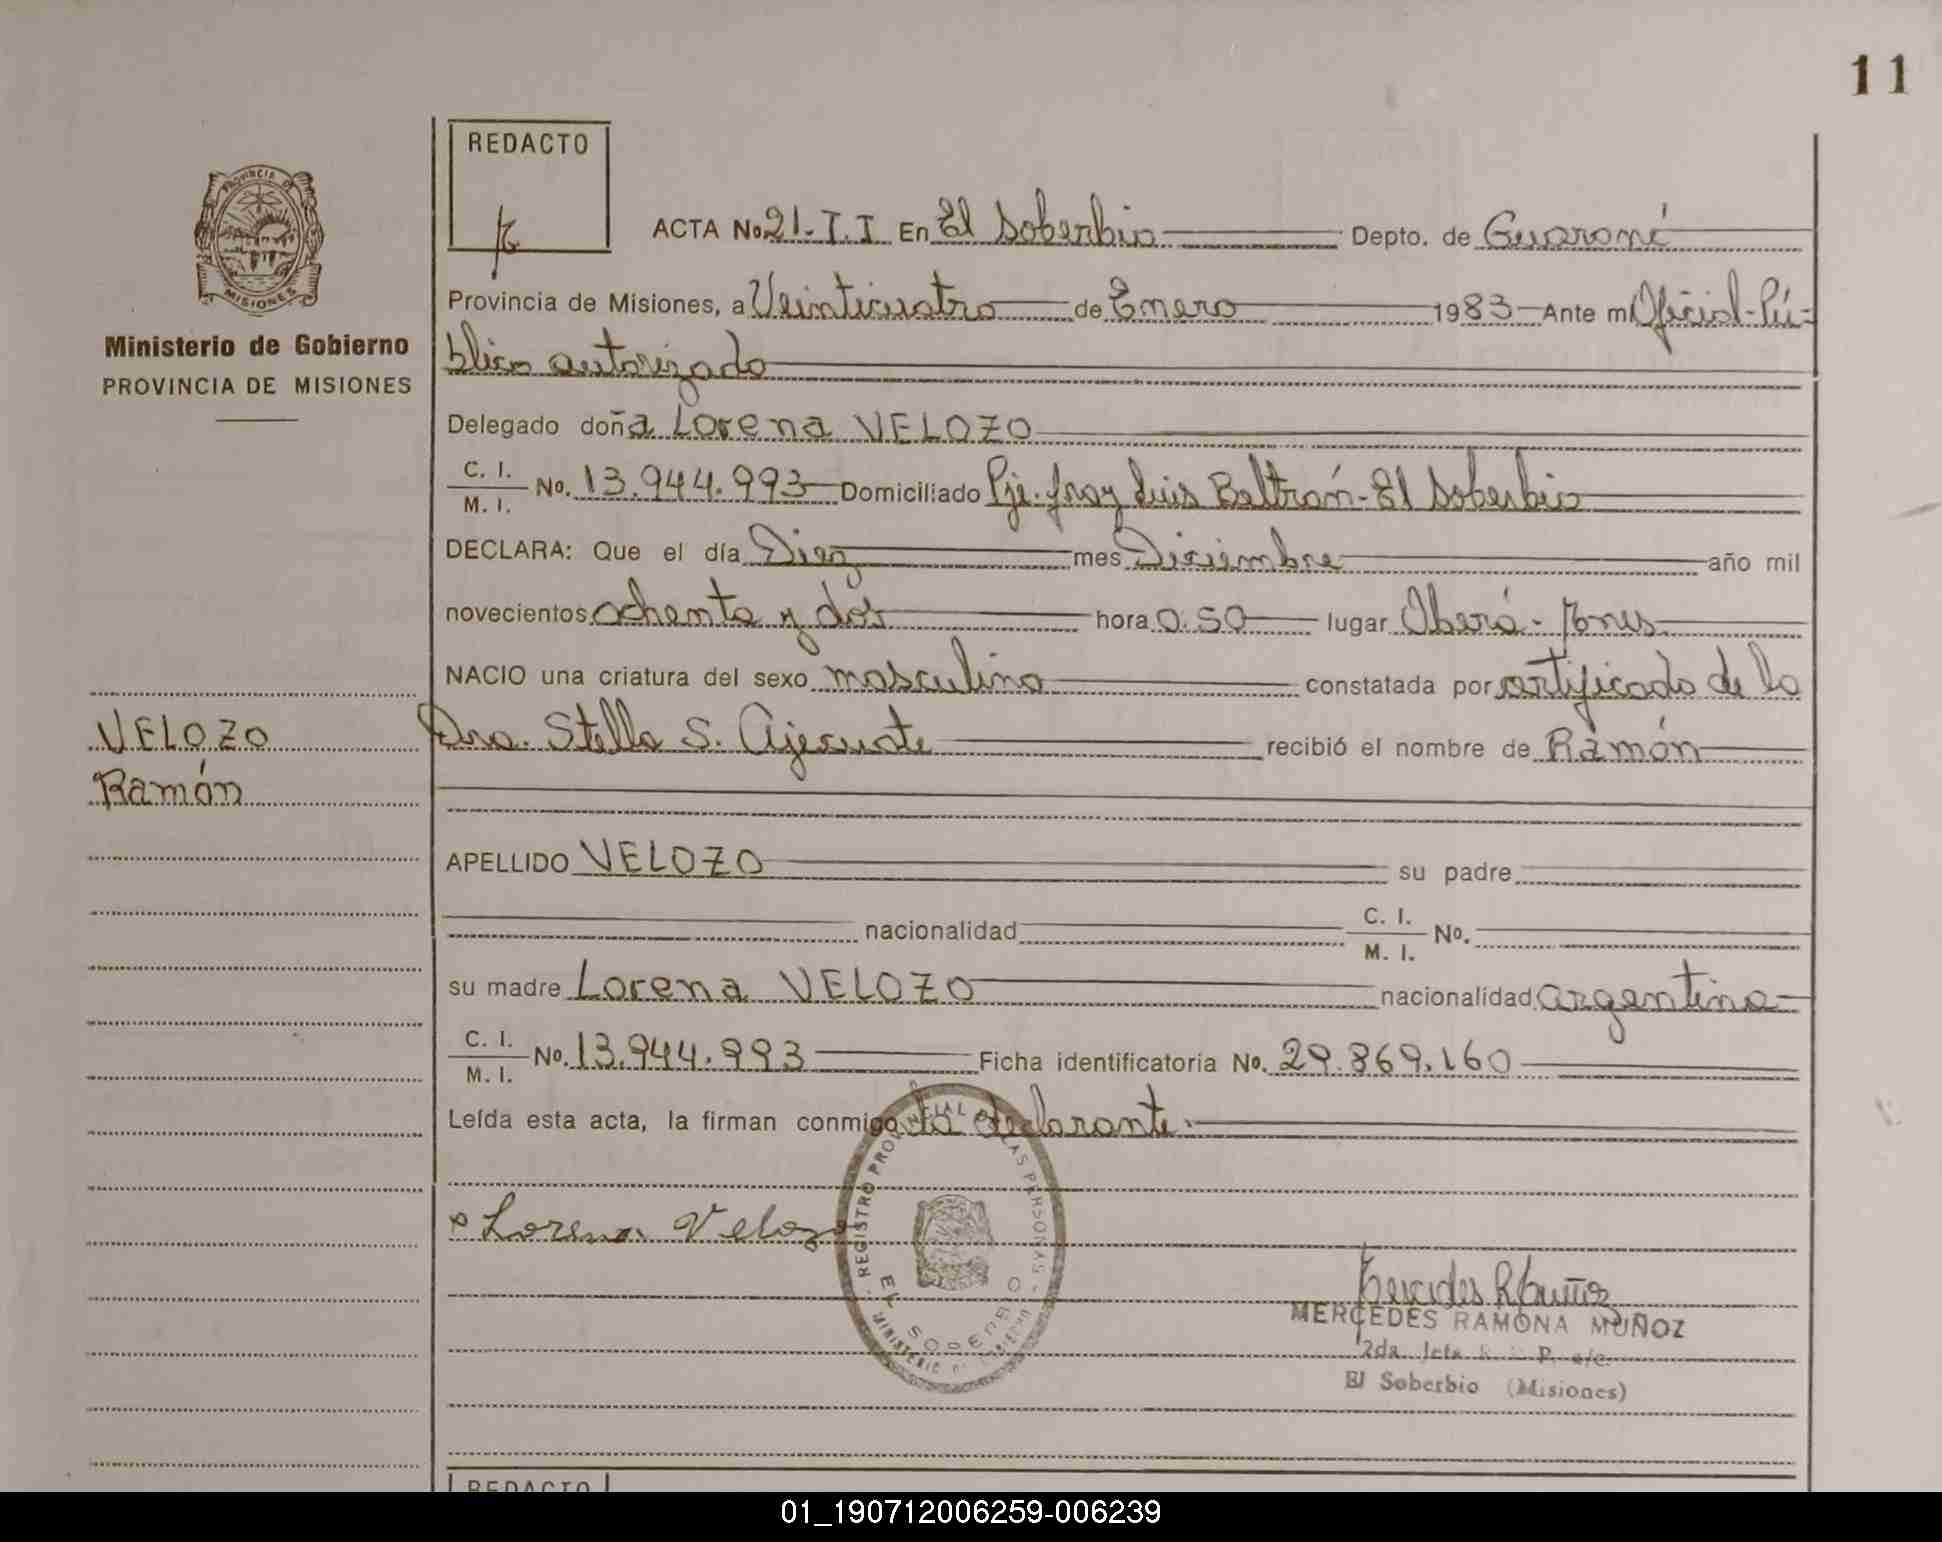 11
REDACTO
PROVINCIA DE
MISIONES
Ministerio de Gobierno
PROVINCIA DE MISIONES
ACTA No. 21-T.I En El Soberbio Depto. de Guaraní
Provincia de Misiones, a Veinticuatro de Enero 1983 Ante mi Oficial Pú-
blico autorizado
Delegado doña Lorena VELOZO
C. I.
M. I. No. 13.944.993 Domiciliado Pje. fray Luis Beltrán - El Soberbio
DECLARA: Que el día Diez mes Diciembre año mil
novecientos ochenta y dos hora 0.50 lugar Oberá - Mnes
NACIO una criatura del sexo masculino constatada por certificado de la
VELOZO
Ramón
Dra. Stella S. recibió el nombre de Ramón
APELLIDO VELOZO su padre
nacionalidad C. I.
M. I. No.
su madre Lorena VELOZO nacionalidad argentina
C. I.
M. I. No. 13.944.993 Ficha identificatoria No. 29.869.160
Leída esta acta, la firman conmigo la declarante.
Lorena Velozo
REGISTRO PROVINCIAL DE LAS PERSONAS
EL SOBERBIO
MINISTERIO DE GOBIERNO
Mercedes R Muñoz
MERCEDES RAMONA MUÑOZ
2da. Jefa R. P. a/c.
El Soberbio (Misiones)
REDACTO
01_190712006259-006239